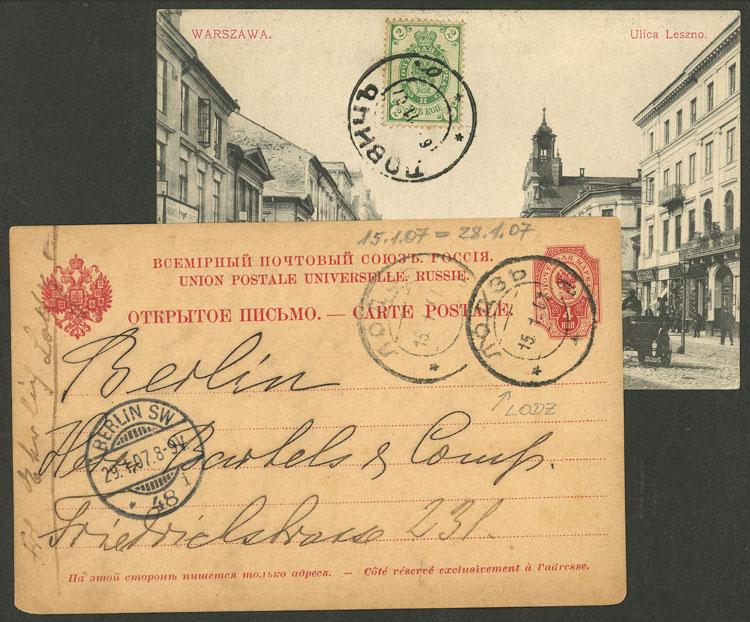 WARSZAWA.
Ulica Leszno.
2
2
2
2
ЛОВИЧЪ
15.1.07 = 28.1.07
ВСЕМІРНЫЙ ПОЧТОВЫЙ СОЮЗЪ. РОССІЯ.
UNION POSTALE UNIVERSELLE. RUSSIE.
ОТКРЫТОЕ ПИСЬМО. — CARTE POSTALE.
4
КОП
ЛОДЗЬ
15
ЛОДЗЬ
15
LODZ
Berlin
BERLIN SW
29.1.07.8-9V.
* 48 i
Herr Bartels & Comp.
Friedrichstrasse 231.
На этой сторонѣ пишется только адресъ. — Côté réservé exclusivement à l'adresse.